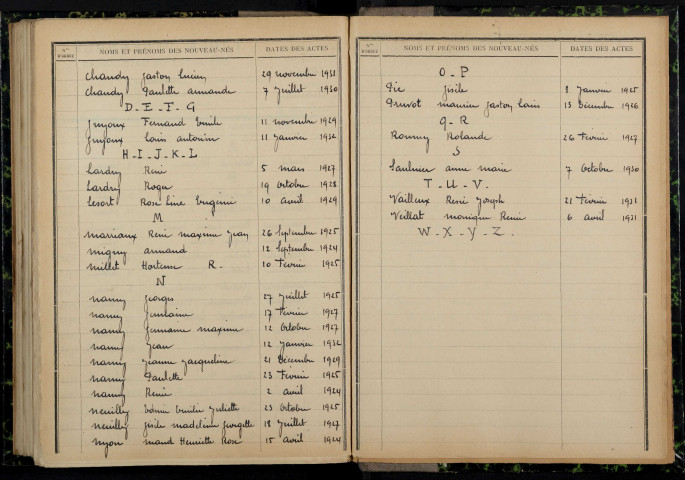 Nos D'ORDRE NOMS ET PRÉNOMS DES NOUVEAU-NÉS DATES DES ACTES
Chandy Gaston Lucien 29 novembre 1931
Chandy Paulette Armande 7 Juillet 1930
D - E - F - G
Fernand Emile 11 novembre 1929
Louis Antonin 11 Janvier 1932
H - I - J - K - L
Lardry René 5 mars 1927
Lardry Roger 19 Octobre 1928
Lesort Rose Line Eugénie 10 avril 1929
M
Marriaux René Maxime Jean 26 Septembre 1925
Migny Armand 12 Septembre 1924
Millet Hortense R. 10 Février 1925
N
Nanny Georges 27 Juillet 1925
Nanny Germaine 17 Février 1927
Nanny Germaine Maxime 12 Octobre 1927
Nanny Jean 12 Janvier 1932
Nanny Jeanne Jacqueline 21 Décembre 1929
Nanny Paulette 23 Février 1925
Nanny René 2 avril 1924
Neuilly Emilie Juliette 23 Octobre 1925
Neuilly Gisèle Madeleine Georgette 18 Juillet 1927
Nyon Maud Henriette Rose 15 Avril 1924
Nos D'ORDRE NOMS ET PRÉNOMS DES NOUVEAU-NÉS DATES DES ACTES
O - P
Pie Gisèle 8 Janvier 1925
Pruvot Maurice Gaston Louis 13 Décembre 1926
Q - R
Rolande 26 Février 1927
S
Saulnier Anne Marie 7 Octobre 1930
T - U - V -
Vailleux René Joseph 21 Février 1931
Veillat Monique Renée 6 avril 1931
W - X - Y - Z -